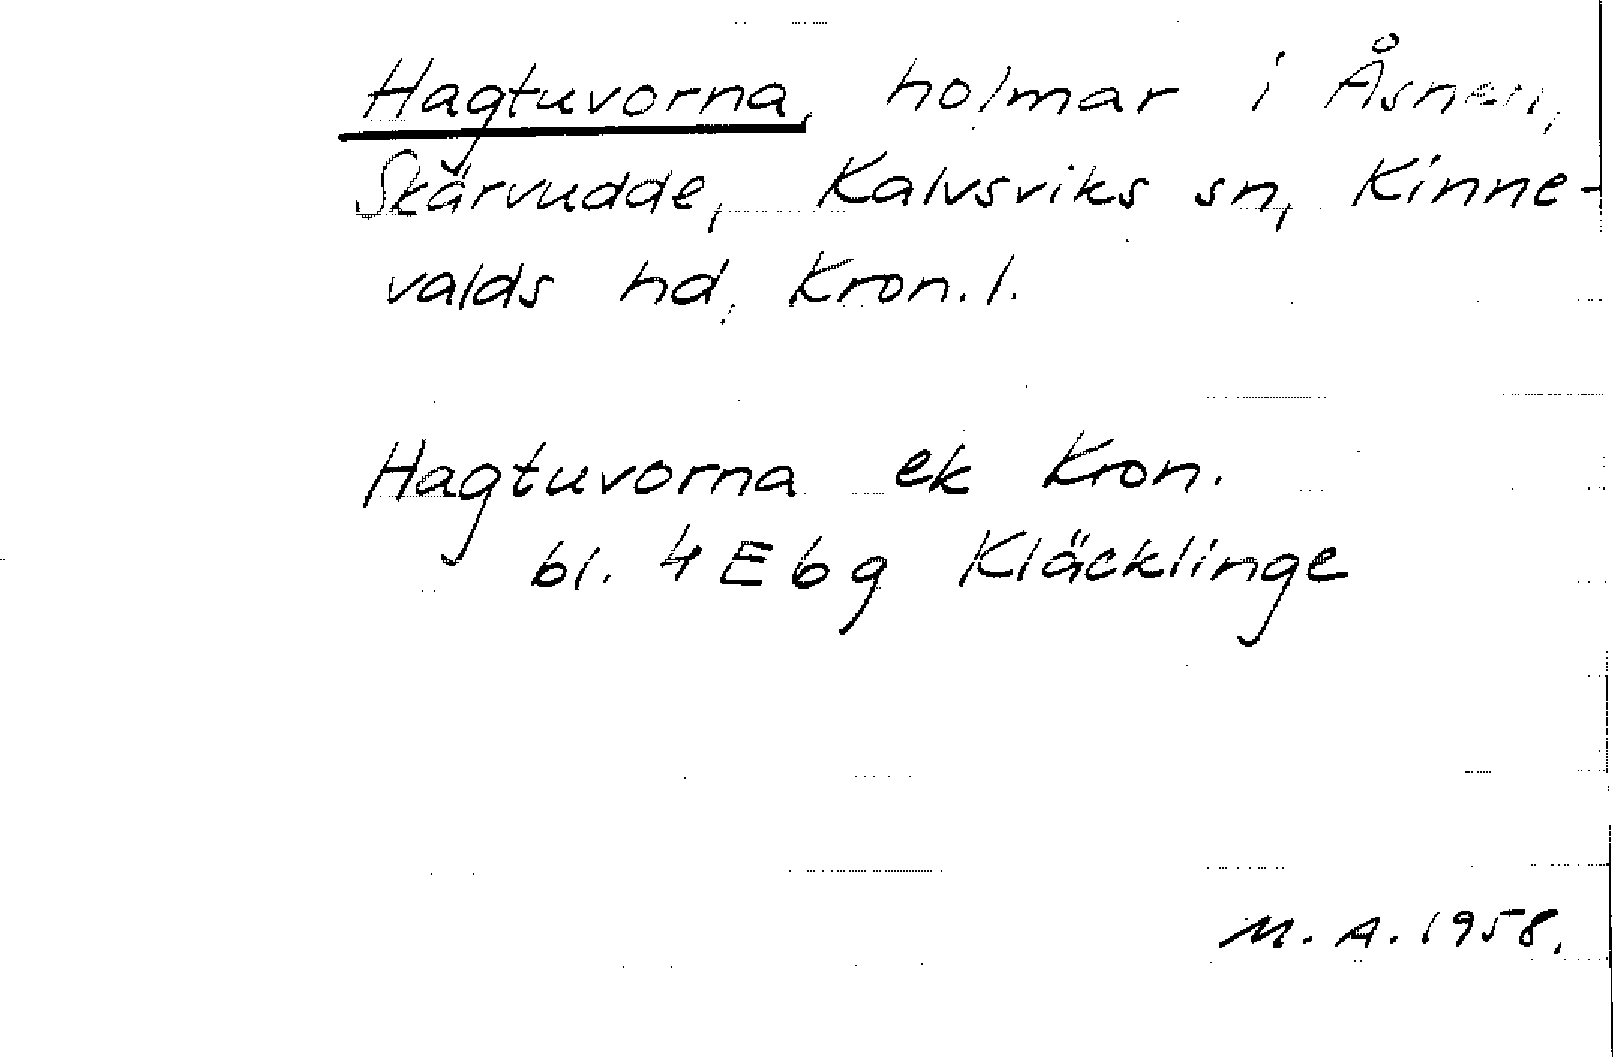 Hagtuvorna, holmar i Åsnen,
Skärvudde, Kalvsviks sn, Kinne-
valds hd, Kron.l.
Hagtuvorna ek Kron.
bl. 4E6g Kläcklinge
M.A.1958.